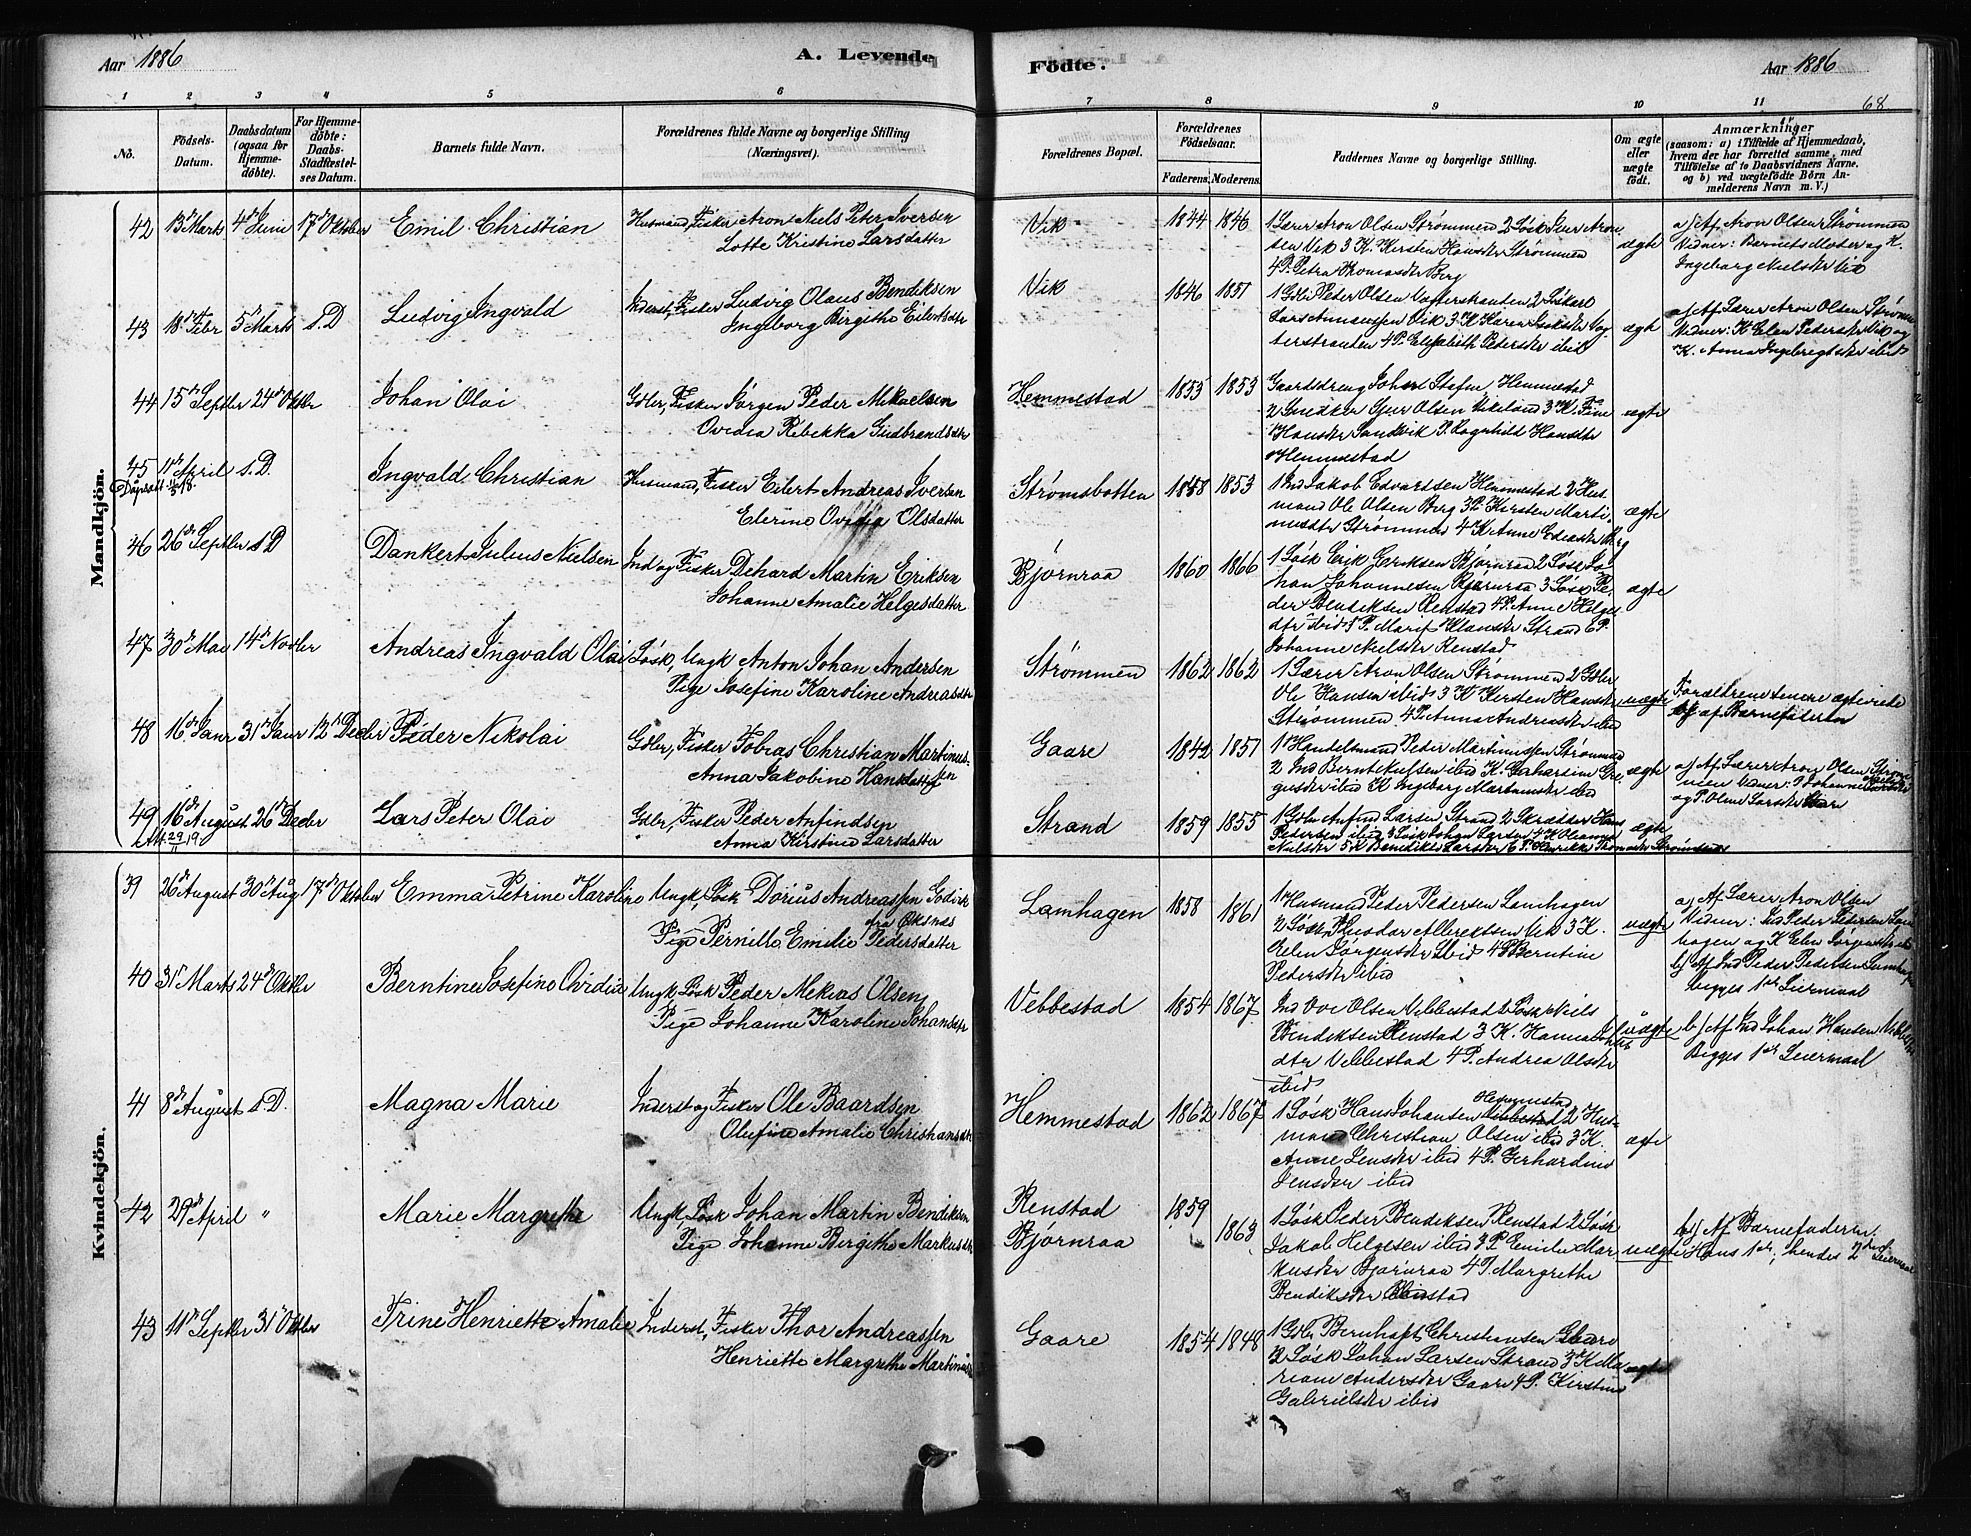 Aar 1886
A. Levende
Födte.
Aar 1886
68
1 2 3 4 5 6 7 8 9 10 11
No.
Födsels-Datum.
Daabsdatum (ogsaa for Hjemme-döbte).
For Hjemme-döbte: Daabs-Stadfæstel-ses Datum.
Barnets fulde Navn.
Forældrenes fulde Navne og borgerlige Stilling (Næringsvei).
Forældrenes Bopæl.
Forældrenes Födselsaar.
Faderens. Moderens.
Faddernes Navne og borgerlige Stilling.
Om ægte eller uægte födt.
Anmærkninger
(saasom: a) i Tilfælde af Hjemmedaab, hvem der har forrettet samme, med Tilföielse af to Daabsvidners Navne, og b) ved uægtefödte Börn An-melderens Navn m. V.)
Mandkjön.
42 13de Marts 4de Juni 17de Oktober Emil Christian
Husmand, Fisker Aron Niels Peter Iversen
Lotte Kristine Larsdatter
Vik 1844 1846
1 Lærer Aron Olsen Strømmen 2 Løsk Peer Aron
sen Vik 3 K. Kirsten Hansdtr Strømmen
4 P. Petra Thomasdtr Berg
ægte
a) Af Aron Olsen Strømmen
Vidner: Barnets Moder og K.
Ingeborg Nielsdtr Vik
43 18de Febr 5te Marts s. D Ludvig Ingvald
Inderst, Fisker Ludvig Olaus Bendiksen
Ingeborg Birgithe Eilertsdtr
Vik 1846 1851
1 Gdbr Peter Olsen
Lars Vik 3 K Karen
4 P. Elisabeth Pedersdtr ibid
ægte
a) Af Lærer Aron Olsen Strømen
Vidner: K Elen Pedersdtr Vik og
K. Anna Ingebregtsdtr ibid
44 15de Septbr 24de Oktbr Johan Olai
Gdbr, Fisker Jørgen Peder Mikaelsen
Ovidia Rebekka Gudbrandsdtr
Hemmestad 1853 1853
Gaardsdreng Johan Hemmestad
2 Snedker Olsen 3 K.
Hansdtr Sandvik P. Ragnhild Hansdtr
Hemmestad
ægte
45 11te April s. D. Ingvald Christian
Husmand, Fisker Eilert Andreas Iversen
Elerine Ovidia Olsdatter
Strømsbotten 1858 1853
1 Ind Jakob Edvardsen Hemmestad 2 Hus
mand Ole Olsen Berg 3 P. Kirsten Marti
nusdtr Strømmen 4 K Anne
ægte
46 26de Septbr s D Dankert Julius Nielsen
Ind og Fisker Dehard Martin Eriksen
Johanne Amalie Helgesdatter
Bjørnraa 1860 1866
1 Løsk Erik Eriksen Bjørnraa 2 Løsk Jo
han Johannesen Bjørnraa 3 Løsk Pe
der Bendiksen Renstad 4 P. Anne Helges
dtr ibid 5 P. Marit Hansdtr Strand 6 P.
Johanne Nielsdtr Renstad
ægte
47 30de Mai 14de Novbr Andreas Ingvald Olai
Løsk, Ungk Anton Johan Andersen
Pige Josefine Karoline Andreasdtr
Strømmen 1862 1862
1 Lærer Aron Olsen Strømmen 2 Gdbr
Ole Hansen ibid 3 K Kirsten Hansdtr
Strømmen 4 P. Anna Andreasdtr ibid
uægte
Forældrene senere ægteviede
af Barnefaderen
48 16de Janr 31te Janr 12te Decbr Peder Nikolai
Gdbr, Fisker Tobias Christian Martinus-
sen
Anna Jakobine Hansdatter
Gaare 1842 1851
1 Handelsmand Peder Martinussen Strømmen
2 Ind Bernt ibid K. Gerhardine
ibid K Ingeborg Martinusdtr ibid
ægte
a) Af Lærer Aron Olsen Strøm
men Vidner: P Johanne
og P. Oline Larsdtr Gaare
49 16de August 26de Decbr Lars Peter Olai
Gdbr, Fisker Peder Anfindsen
Anna Kirstine Larsdatter
Strand 1859 1855
1 Gdbr Anfind Larsen Strand 2 Skrædder Hans
Pedersen ibid 3 Løsk Johan Larsen 4 K Oleanna
Nielsdtr 5 K Benedikte Larsdtr 6 P. Henrikke
ægte
Kvindekjön.
39 26de August 30te Aug 17de Oktober Emma Petrine Karoline
Ungk, Løsk Dorius Andreassen Godvik
fra Øksnes
Pige Pernille Emilie Pedersdatter
Lamhagen 1858 1861
1 Husmand Peder Pedersen Lamhagen
2 Løsk Theodor Albrektsen Vik 3 K.
Elen Jørgensdtr ibid 4 P Berntine
Pedersdtr ibid
uægte
a) Af Lærer Aron Olsen
Vidner: Ind Peder Pedersen Lam
hagen og K Elen Jørgensdtr ibid
b) Af Ind Peder Pedersen Lamhag
begges 1ste Leiermaal
40 31te Marts 24de Oktbr Berntine Josefine Ovidia
Ungk, Løsk Peder Mekias Olsen
Pige Johanne Karoline Johansdtr
Vebbestad 1854 1867
Ind Ove Olsen Vebbestad 2 Løsk Niels
Bendiksen Renstad 3 K. Hanna
dtr Vebbestad 4 P. Andrea Olsdtr
ibid
uægte
b) Af Ind Johan Hansen
Begges 1ste Leiermaal
41 8de August s. D. Magna Marie
Inderst og Fisker Ole Baardsen
Olufine Amalie Christiansdtr
Hemmestad 1862 1867
Hemmestad
1 Løsk Hans Johansen 2 Hus-
mand Christian Olsen ibid 3 K.
Anne Jensdtr ibid 4 P. Gerhardine
Jensdtr ibid
ægte
42 29de April " Marie Margrethe
Ungk, Løsk Johan Martin Bendiksen
Pige Johanne Bergithe Markusdtr
Renstad 1859
Bjørnraa 1863
1 Løsk Peder Bendiksen Renstad 2 Løsk
Jakob Helgesen ibid 3 P Emilie Mar
kusdtr Bjørnraa 4 P. Margrethe
Bendiksdtr Renstad
uægte
b) Af Barnefaderen.
Hans 1ste, hendes 2det Leiermaal
43 11te Septbr 31te Oktbr Trine Henriette Amalie
Inderst, Fisker Thor Andreassen
Henriette Margrethe Martinusdtr
Gaare 1854 1848
1 Gdbr Bernhoft Christiansen Gaare
2 Løsk Johan Larsen Strand 3 K Ma
riane Andersdtr Gaare 4 P. Kirstine
Gabrielsdtr ibid
ægte